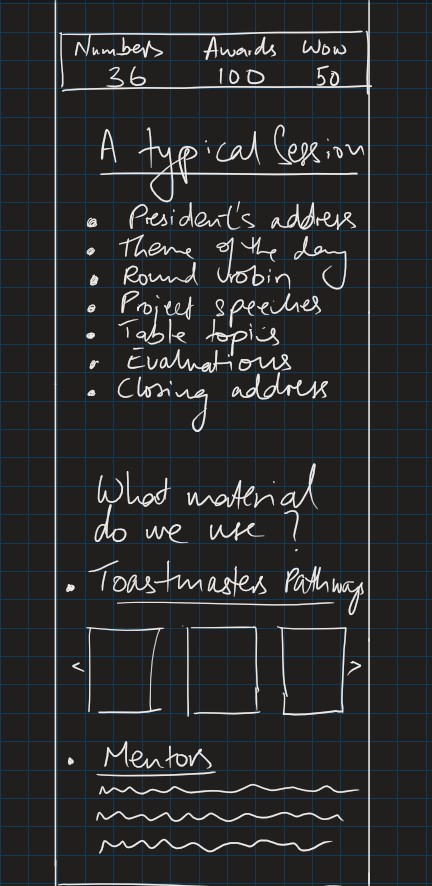 Numbers Awards Wow
36 100 50
A typical Session
• President's address
• Theme of the day
• Round robin
• Project speeches
• Table topics
• Evaluations
• Closing address
What material
do we use ?
• Toastmasters Pathways
< >
• Mentors